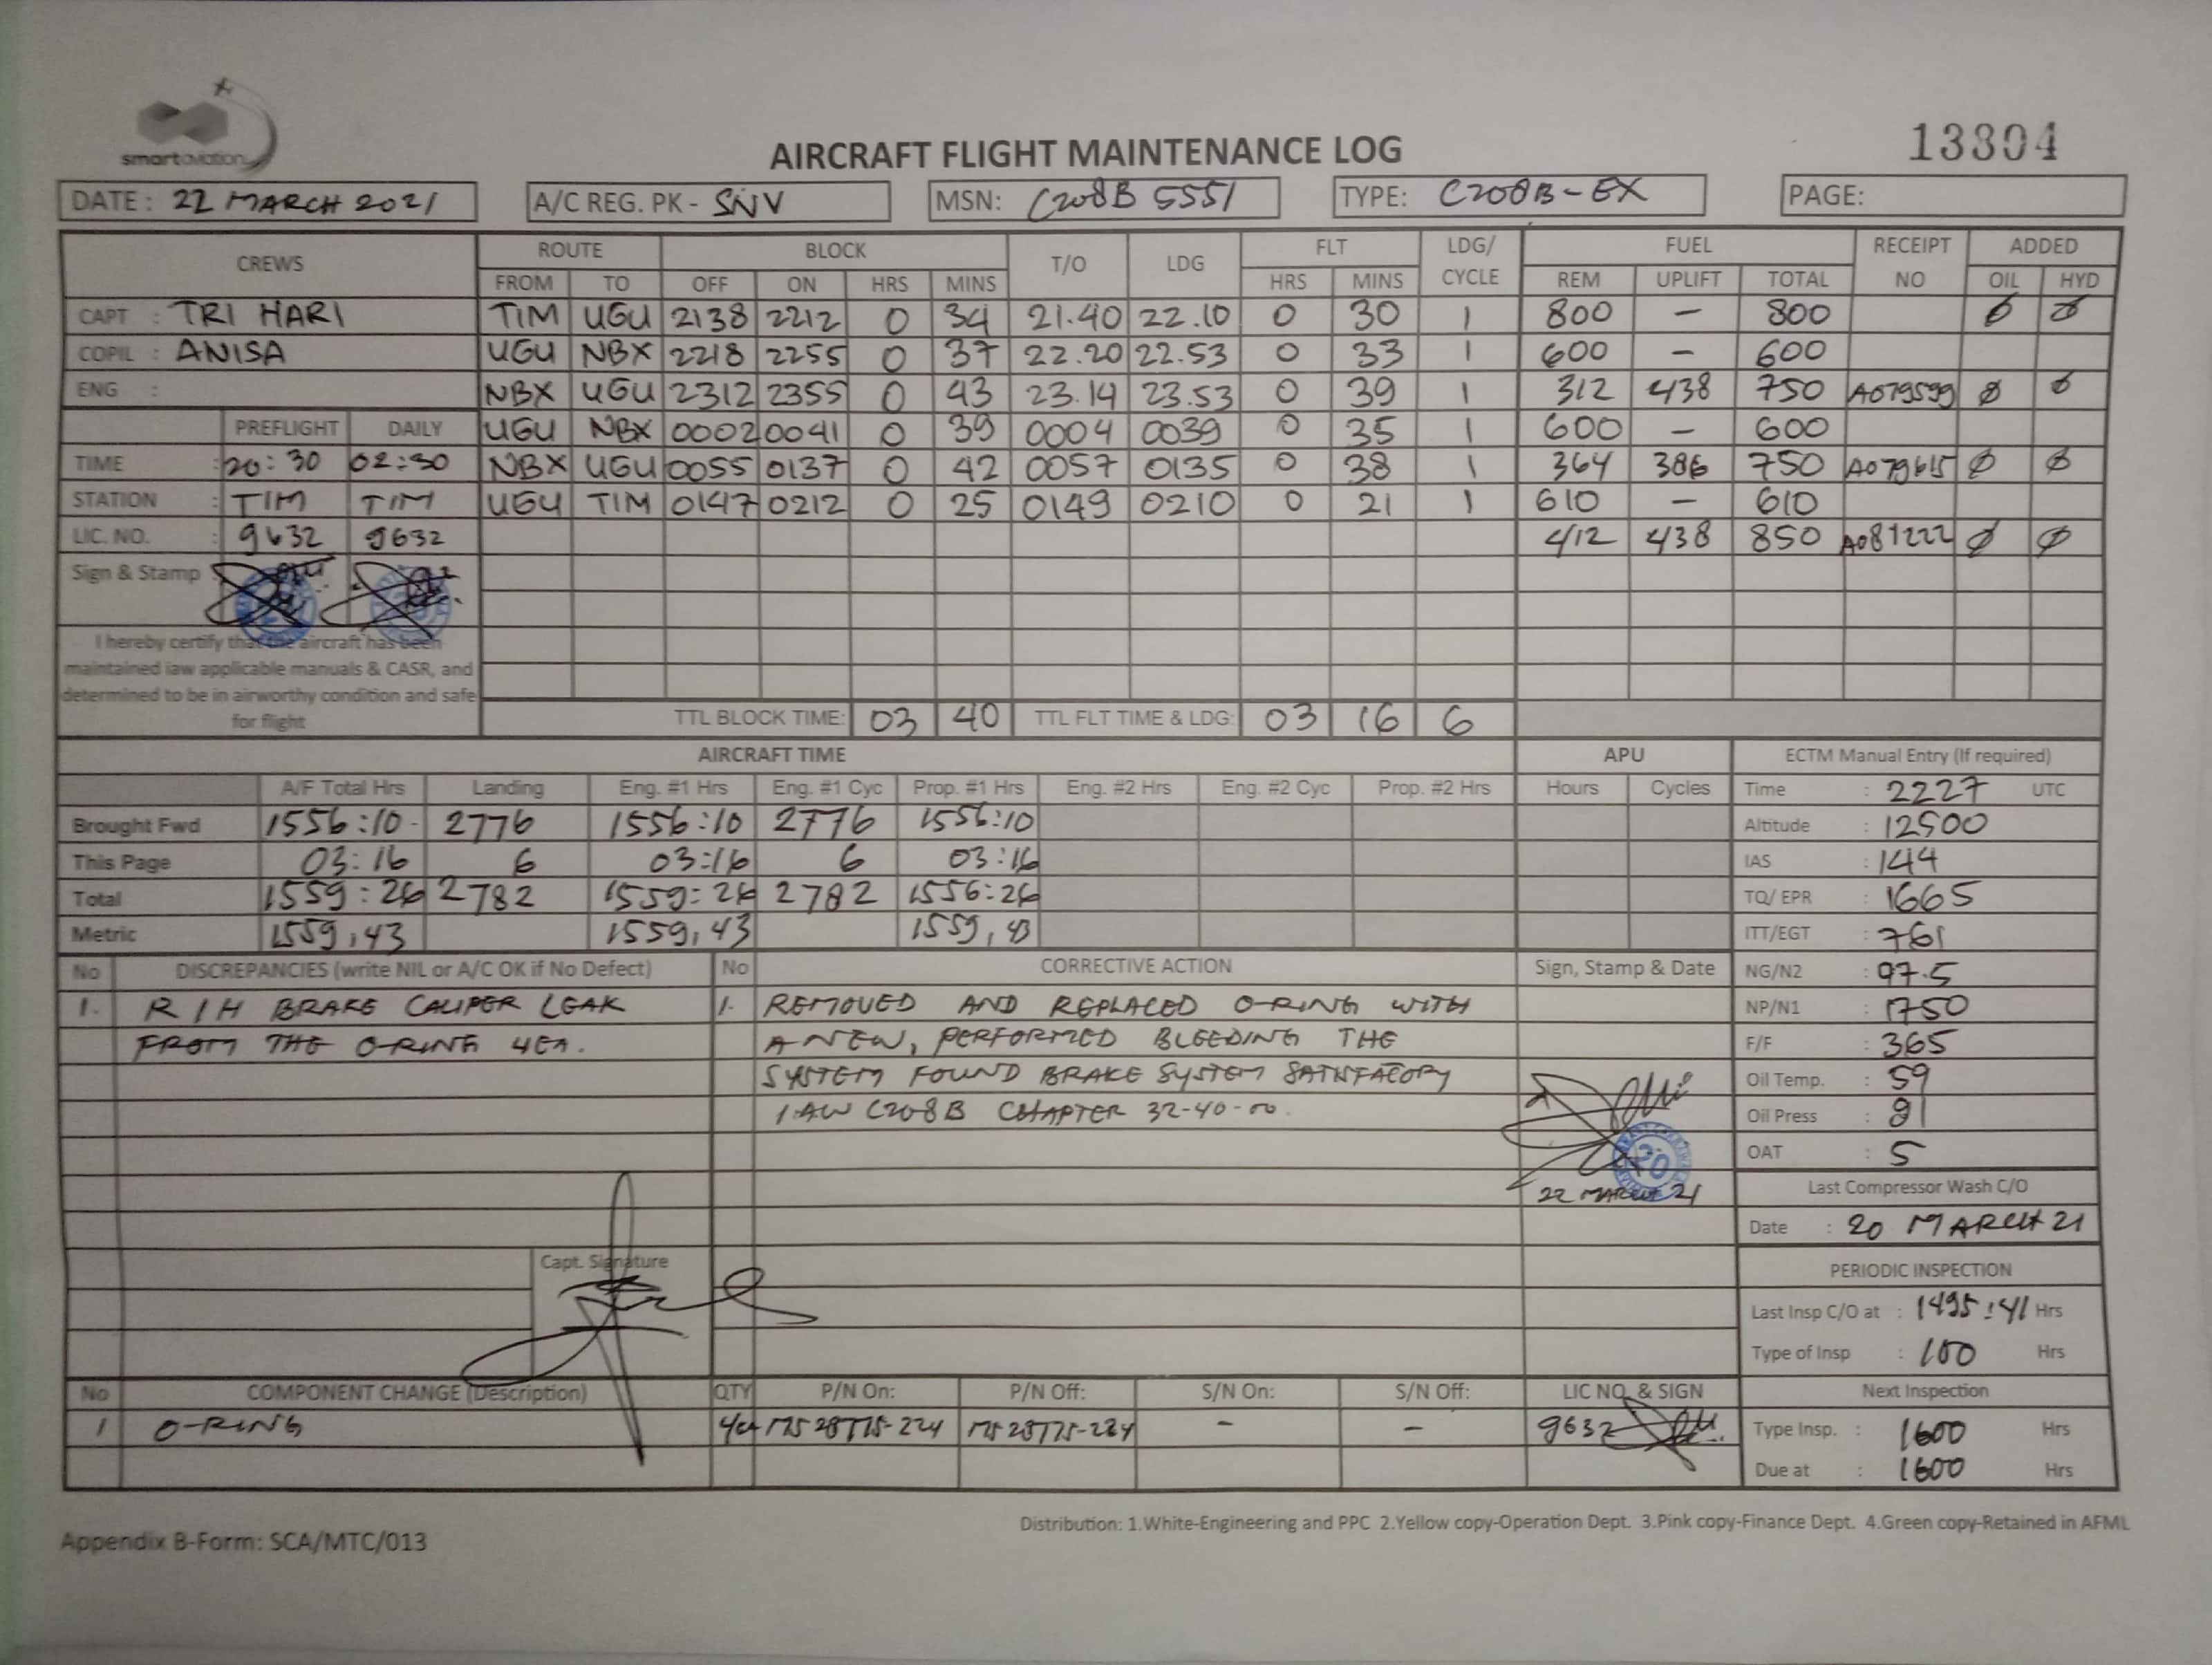 smart aviation
AIRCRAFT FLIGHT MAINTENANCE LOG
13304
DATE : 22 MARCH 2021 A/C REG. PK - SNV MSN: C208B 5551 TYPE: C208B-EX PAGE:
CREWS ROUTE BLOCK T/O LDG FLT LDG/ CYCLE FUEL RECEIPT NO ADDED
FROM TO OFF ON HRS MINS HRS MINS REM UPLIFT TOTAL OIL HYD
CAPT : TRI HARI TIM UGU 2138 2212 0 34 21.40 22.10 0 30 1 800 – 800 Ø Ø
COPIL : ANISA UGU NBX 2218 2255 0 37 22.20 22.53 0 33 1 600 – 600
ENG : NBX UGU 2312 2355 0 43 23.14 23.53 0 39 1 312 438 750 A079599 Ø Ø
PREFLIGHT DAILY UGU NBX 0002 0041 0 39 0004 0039 0 35 1 600 – 600
TIME : 20:30 02:30 NBX UGU 0055 0137 0 42 0057 0135 0 38 1 364 386 750 A079615 Ø Ø
STATION : TIM TIM UGU TIM 0147 0212 0 25 0149 0210 0 21 1 610 – 610
LIC. NO. : 9632 9632 412 438 850 A081222 Ø Ø
Sign & Stamp :
I hereby certify that the aircraft has been
maintained iaw applicable manuals & CASR, and
determined to be in airworthy condition and safe
for flight
TTL BLOCK TIME: 03 40 TTL FLT TIME & LDG: 03 16 6
AIRCRAFT TIME APU ECTM Manual Entry (If required)
A/F Total Hrs Landing Eng. #1 Hrs Eng. #1 Cyc Prop. #1 Hrs Eng. #2 Hrs Eng. #2 Cyc Prop. #2 Hrs Hours Cycles Time : 2227 UTC
Brought Fwd 1556:10 2776 1556:10 2776 1556:10 Altitude : 12500
This Page 03:16 6 03:16 6 03:16 IAS : 144
Total 1559:26 2782 1559:26 2782 1556:26 TQ/ EPR : 1665
Metric 1559,43 1559,43 1559,43 ITT/EGT : 761
No DISCREPANCIES (write NIL or A/C OK if No Defect) No CORRECTIVE ACTION Sign, Stamp & Date NG/N2 : 97.5
1. R/H BRAKE CALIPER LEAK 1. REMOVED AND REPLACED O-RING WITH NP/N1 : 1750
FROM THE O-RING 4EA. A NEW, PERFORMED BLEEDING THE F/F : 365
SYSTEM FOUND BRAKE SYSTEM SATISFACORY Oil Temp. : 59
IAW C208B CHAPTER 32-40-00. Oil Press : 91
20 OAT : 5
22 MARCH 21 Last Compressor Wash C/O
Date : 20 MARCH 21
Capt. Signature
PERIODIC INSPECTION
Last Insp C/O at : 1495:41 Hrs
Type of Insp : 100 Hrs
No COMPONENT CHANGE (Description) QTY P/N On: P/N Off: S/N On: S/N Off: LIC NO. & SIGN Next Inspection
1 O-RING 4ea MS28775-224 MS28775-224 – – 9632 Type Insp. : 1600 Hrs
Due at : 1600 Hrs
Distribution: 1.White-Engineering and PPC 2.Yellow copy-Operation Dept. 3.Pink copy-Finance Dept. 4.Green copy-Retained in AFML
Appendix B-Form: SCA/MTC/013